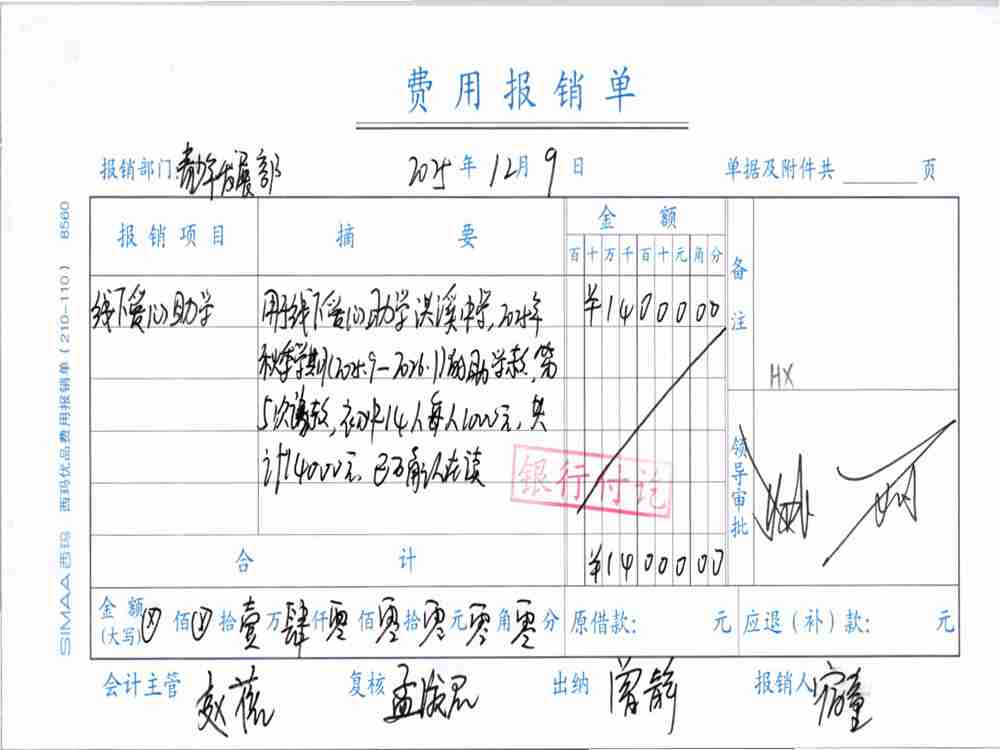 费用报销单
报销部门:青少年发展部 2025年12月9日 单据及附件共 页
报销项目 摘要 金额 备注
百十万千百十元角分
线下爱心助学 用于线下爱心助学洪溪中学,2025年 ¥1400000
秋季学期(2025.9-2026.1)的助学款,第
5次拨款,初中14人每人1000元,共
计14000元,已确认在读
HX
银行付讫
领导审批
合计 ¥1400000
金额(大写)⊗佰⊗拾壹万肆仟零佰零拾零元零角零分 原借款: 元 应退(补)款: 元
会计主管 赵蓓 复核 出纳 曾静 报销人
SIMAA 西玛 西玛优品费用报销单(210-110) 8560